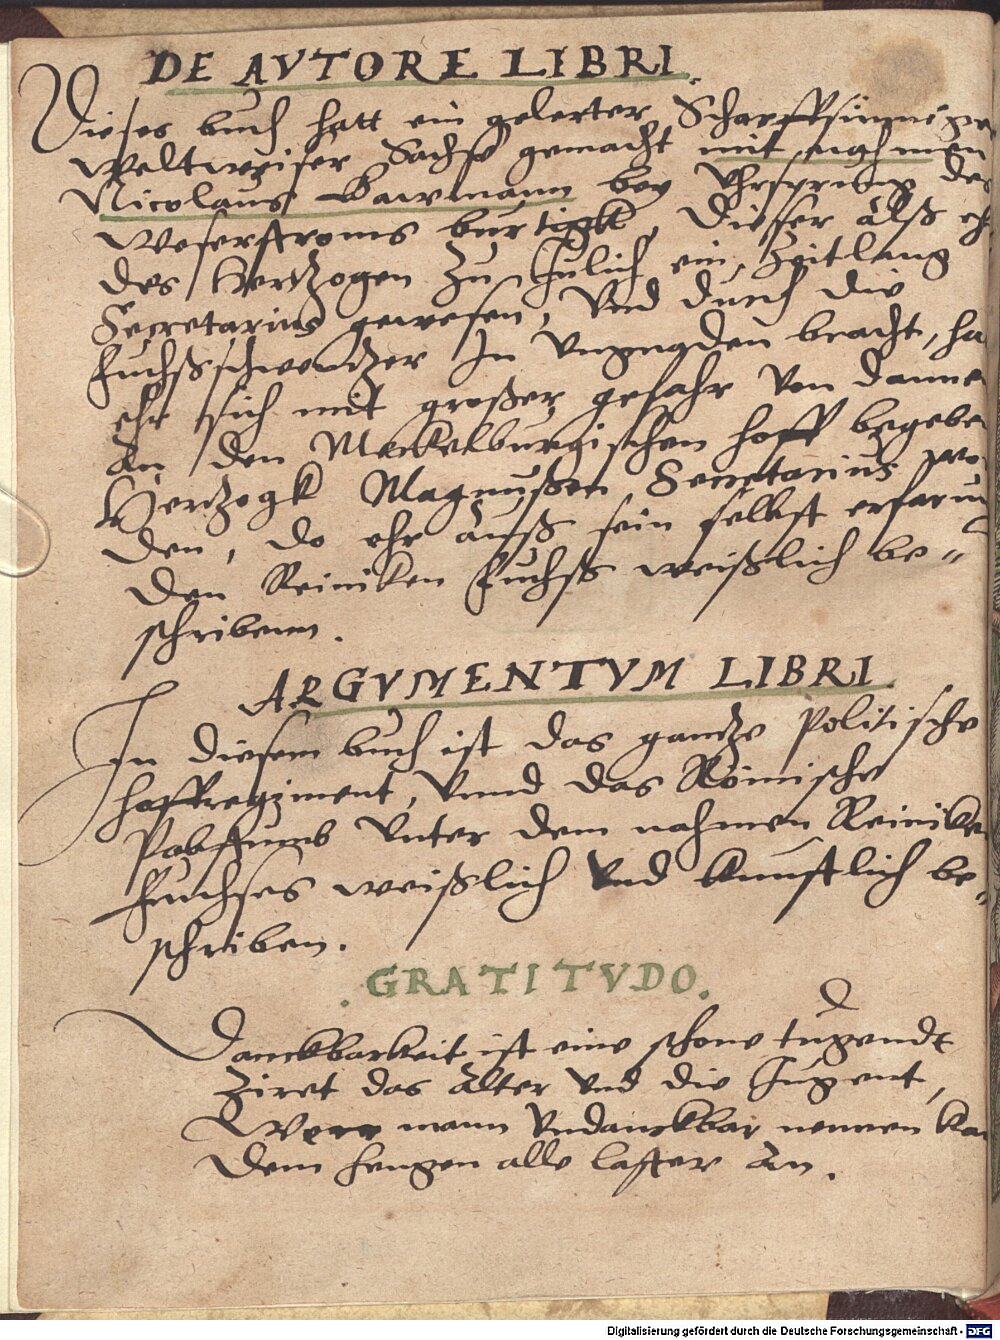 DE AVTORE LIBRI.
Dieses buch hatt ein gelerter Scharffsinniger
weltweiser Sachse gemacht mit nahmen
Nicolaus Bawmann bey Vhrsprung des
weserstroms burtigk, dieser alß ehr
des Hertzogen zu Julich ein Zeitlang
Secretarius gewesen, Vnd durch die
fuchßschwentzer In Vngnaden bracht, ha
ehr sich mit großer gefahr Von danne
An den Meckelburgischen hoff begeben
Hertzogk Magnußen Secretarius wo
den, do ehr auß sein selbst erfarung
den Reiniken fuchß weißlich be=
schribenn.
ARGVMENTVM LIBRI.
In diesem buch ist das gantze Politische
hoffregiment, Vnnd das Römische
Pabstumb Vnter dem nahmen Reiniken
fuchses weißlich Vnd kunstlich be=
schriben.
.GRATITVDO.
Danckbarkeit ist eine schone tugendt
Ziret das Alter Vnd die Jugent,
Wenn mann Vndanckbar nennen ka
Dem hengen alle laster An.
Digitalisierung gefördert durch die Deutsche Forschungsgemeinschaft - DFG